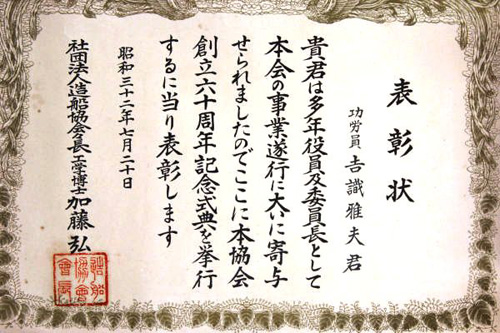 表彰状
功労員 吉識雅夫君
貴君は多年役員及委員長として
本会の事業遂行に大いに寄与
せられましたのでここに本協会
創立六十周年記念式典を挙行
するに当り表彰します
昭和三十二年七月二十日
社団法人造船協会長 工学博士 加藤弘
造船
協會
會長